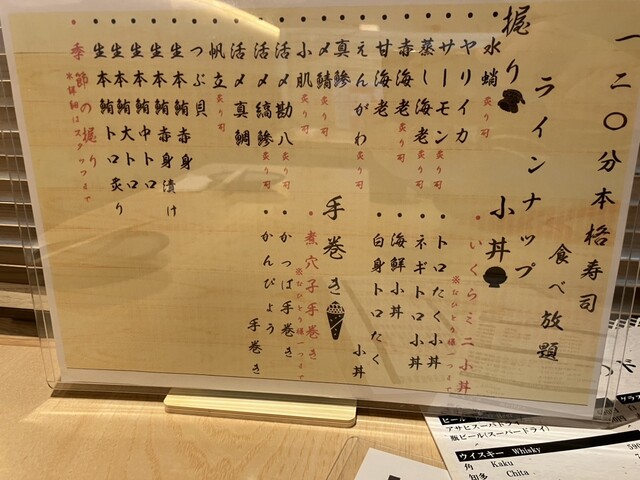 一二〇分本格寿司
食べ放題
ラインナップ
握り
・水蛸 炙り可
・ヤリイカ
・サーモン 炙り可
・蒸し海老
・赤海老 炙り可
・甘海老
・えんがわ 炙り可
・真鯵
・〆鯖 炙り可
・小肌 炙り可
・活〆勘八 炙り可
・活〆縞鯵 炙り可
・活〆真鯛
・帆立 炙り可
・つぶ貝
・生本鮪赤身
・生本鮪赤身漬け
・生本鮪中トロ
・生本鮪大トロ
・生本鮪トロ炙り
・季節の握り
※詳細はスタッフまで
小丼
・いくらミニ小丼
※おひとり様一つまで
・トロたく小丼
・ネギトロ小丼
・海鮮小丼
・白身トロたく小丼
手巻き
・煮穴子手巻き
※おひとり様一つまで
・かっぱ手巻き
・かんぴょう手巻き
ビール
アサヒスーパードライ
瓶ビール(スーパードライ)
ウイスキー Whisky
角 Kaku
知多 Chita